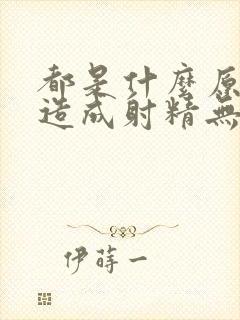 都是什麼原
造成射精無
伊蒔一